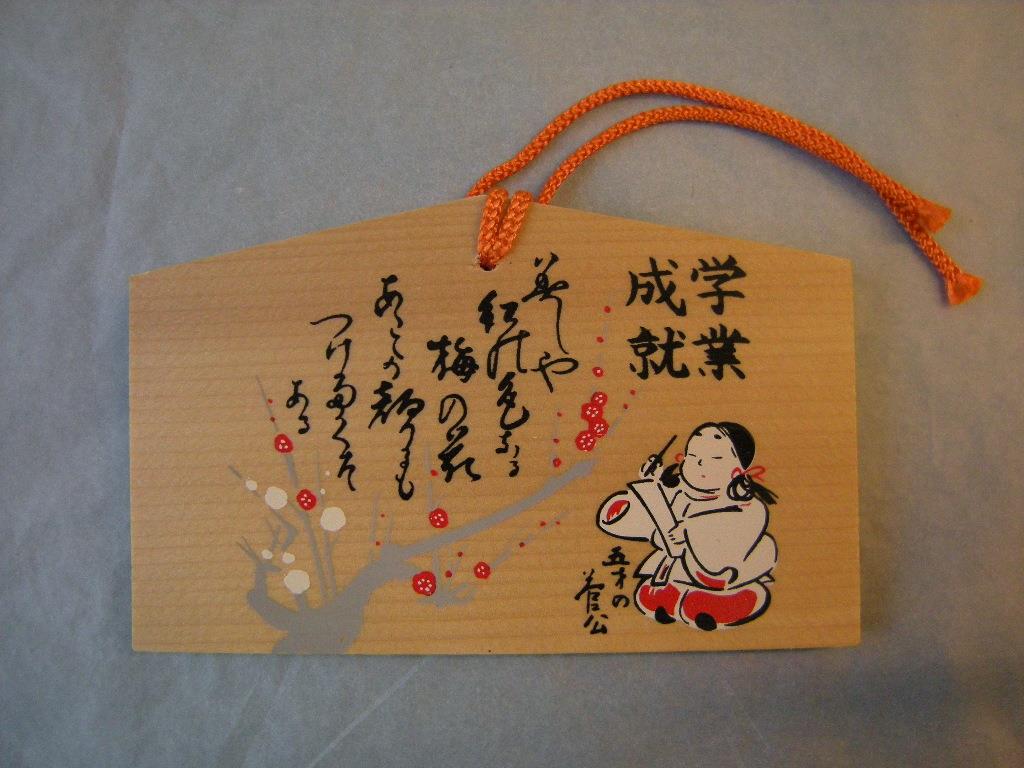 学業
成就
美しや
紅の色なる
梅の花
あこが顔にも
つけたくそ
ある
五才の
菅公